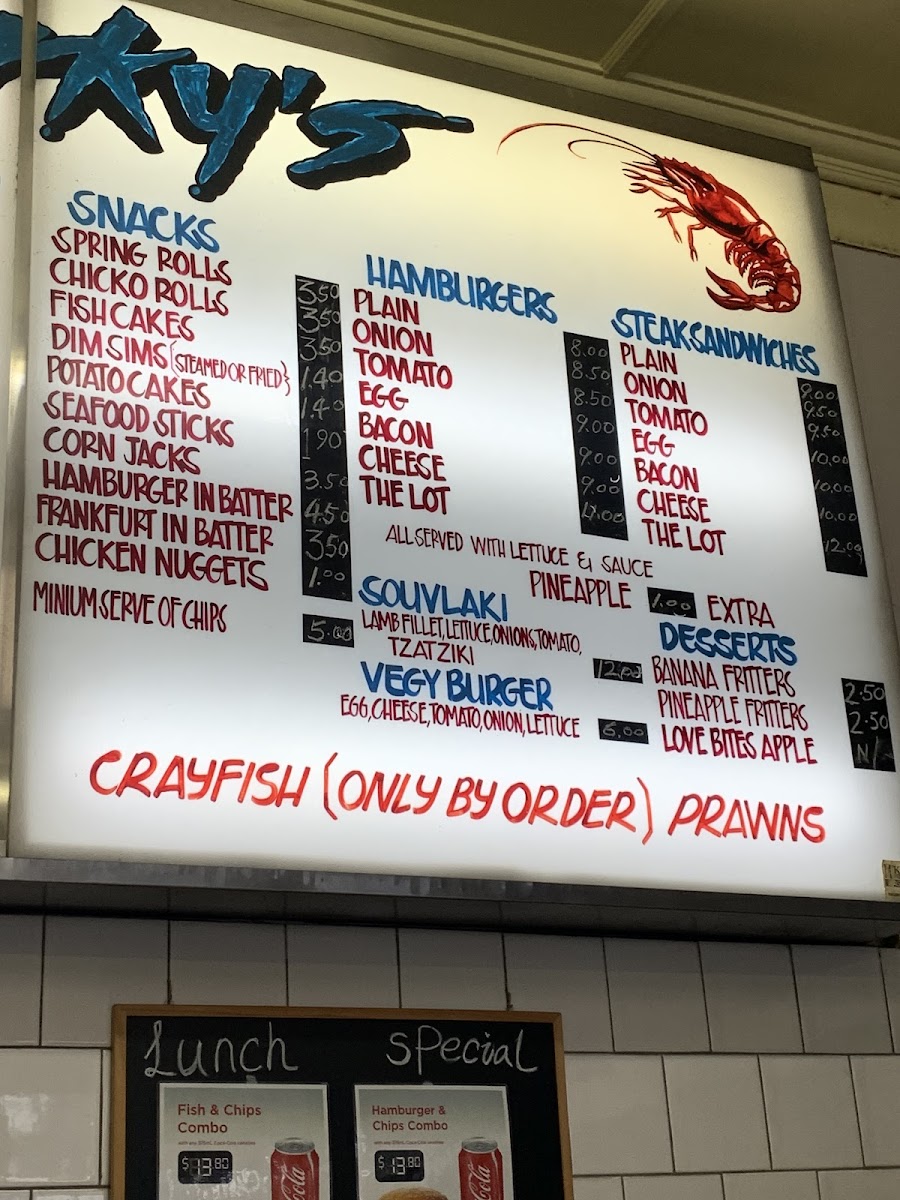 ky's
SNACKS
SPRING ROLLS 3.50
CHICKO ROLLS 3.50
FISH CAKES 3.50
DIM SIMS {STEAMED OR FRIED} 1.40
POTATO CAKES 1.40
SEAFOOD STICKS 1.90
CORN JACKS 3.50
HAMBURGER IN BATTER 4.50
FRANKFURT IN BATTER 3.50
CHICKEN NUGGETS 1.00
MINIUM SERVE OF CHIPS 5.00
HAMBURGERS
PLAIN 8.00
ONION 8.50
TOMATO 8.50
EGG 9.00
BACON 9.00
CHEESE 9.00
THE LOT
STEAKSANDWICHES
PLAIN 9.00
ONION 9.50
TOMATO 9.50
EGG 10.00
BACON 10.00
CHEESE 10.00
THE LOT 12.00
ALL SERVED WITH LETTUCE & SAUCE
PINEAPPLE 1.00 EXTRA
SOUVLAKI
LAMB FILLET, LETTUCE, ONIONS, TOMATO,
TZATZIKI 12.00
VEGY BURGER
EGG, CHEESE, TOMATO, ONION, LETTUCE 6.00
DESSERTS
BANANA FRITTERS 2.50
PINEAPPLE FRITTERS 2.50
LOVE BITES APPLE
CRAYFISH (ONLY BY ORDER) PRAWNS
Lunch Special
Fish & Chips
Combo
$13.80
Hamburger &
Chips Combo
$13.80